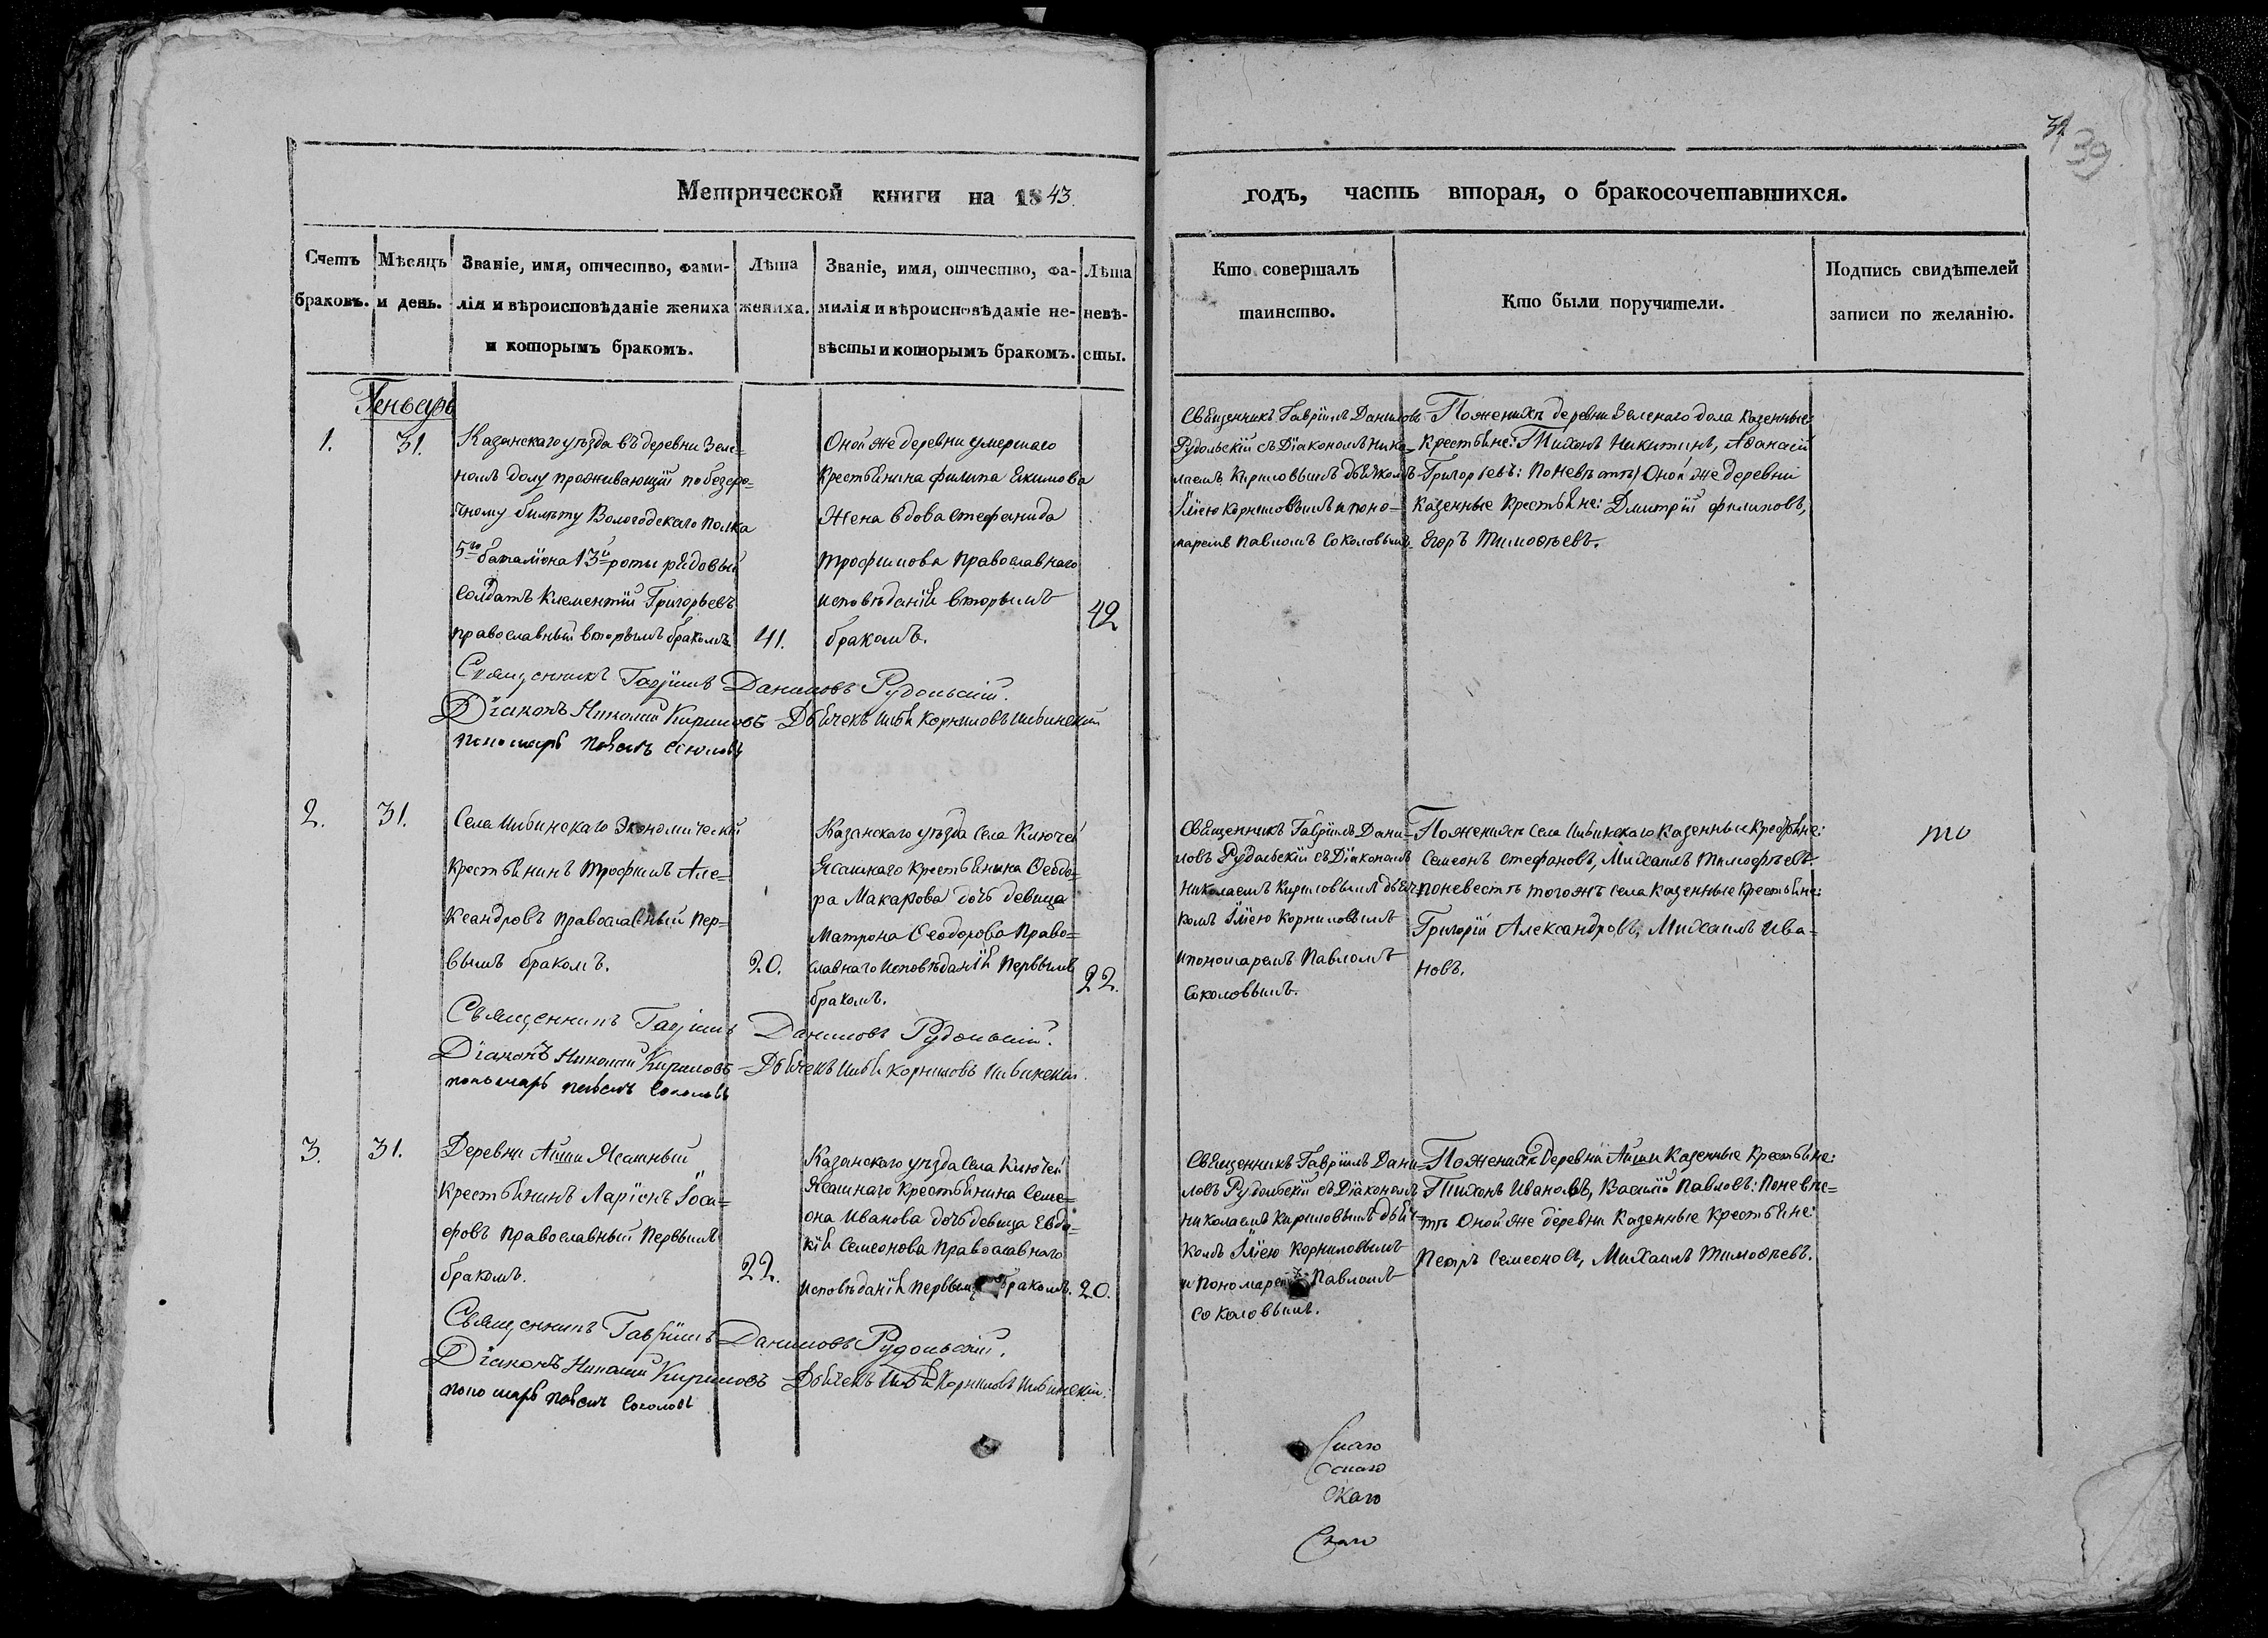 32
39
Метрической книги на 1843
годъ, часть вторая, о бракосочетавшихся.
Счетъ
браковъ.
Мѣсяцъ
и день.
Званіе, имя, отчество, фами-
лія и вѣроисповѣданіе жениха
и которымъ бракомъ.
Лѣта
жениха.
Званіе, имя, отчество, фа-
милія и вѣроисповѣданіе не-
вѣсты и которымъ бракомъ.
Лѣта
невѣ-
сты.
Кто совершалъ
таинство.
Кто были поручители.
Подпись свидѣтелей
записи по желанію.
Геньварь
1.
31.
Казанскаго уѣзда въ деревни Зеле-
номъ долу проживающій по безсро-
чному билѣту Вологодскаго полка
5го баталіона 13й роты рядовый
Солдатъ Клементій Григорьевъ
православный вторымъ бракомъ
41.
Оной же деревни умершаго
Крестьянина филипа Екимова
Жена вдова Стефанида
Трофимова Православнаго
исповѣданія вторымъ
бракомъ.
42
Священникъ Гавріилъ Даниловъ
Рудольскій съ Діакономъ Нико-
лаемъ Кириловымъ дьячкомъ
Іліею Корниловымъ и поно-
маремъ Павломъ Соколовымъ
По женихѣ деревни Зеленаго дола казенные
Крестьяне: Тихонъ Никитинъ, Аѳанасій
Григорьевъ: По невѣстѣ Оной же деревни
Казенные Крестьяне: Дмитрій филиповъ,
Егоръ Тимоѳѣевъ.
Священникъ Гавріилъ Даниловъ Рудольскій.
Діаконъ Николай Кириловъ Дьячекъ Илья Корниловъ Шибинскій
пономарь Павелъ Соколовъ
2.
31.
Села Шибинскаго Экономическій
Крестьянинъ Трофимъ Але-
ксандровъ православный пер-
вымъ бракомъ.
20.
Казанскаго уѣзда села Ключей
Ясашнаго крестьянина Ѳеодо-
ра Макарова дочь девица
Матрона Ѳеодорова Право-
славнаго исповѣданія первымъ
бракомъ.
22.
Священникъ Гавріилъ Дани-
ловъ Рудольскій съ Діакономъ
Николаемъ Кириловымъ дьяч-
комъ Іліею Корниловымъ
и пономаремъ Павломъ
Соколовымъ.
По женихѣ Села Шибинскаго казенные Крестьяне:
Семеонъ Стефановъ, Михаилъ Тимофѣевъ.
по невестѣ тогожъ села казенные крестьяне:
Григорій Александровъ, Михаилъ Ива-
новъ.
то
Священникъ Гавріилъ Даниловъ Рудольскій.
Діаконъ Николай Кириловъ Дьячекъ Илья Корниловъ Шибинскій.
пономарь Павелъ Соколовъ
3.
31.
Деревни Айши Ясашный
крестьянинъ Ларіонъ Іоса-
фовъ православный первымъ
бракомъ.
22.
Казанскаго уѣзда села Ключей
Ясашнаго крестьянина Семе-
она Иванова дочь девица Евдо-
кія Семеонова Православнаго
исповѣданія первымъ бракомъ.
20.
Священникъ Гавріилъ Дани-
ловъ Рудольскій съ Діакономъ
Николаемъ Кириловымъ дьяч-
комъ Іліею Корниловымъ
и пономаремъ Павломъ
Соколовымъ.
По женихѣ Деревни Айши казенные крестьяне:
Тихонъ Ивановъ, Василій Павловъ: По невѣс-
тѣ Оной же деревни казенные крестьяне:
Петръ Семеоновъ, Михаилъ Тимоѳѣевъ.
Священникъ Гавріилъ Даниловъ Рудольскій.
Діаконъ Николай Кириловъ Дьячекъ Илья Корниловъ Шибинскій.
пономарь Павелъ Соколовъ
Скаго